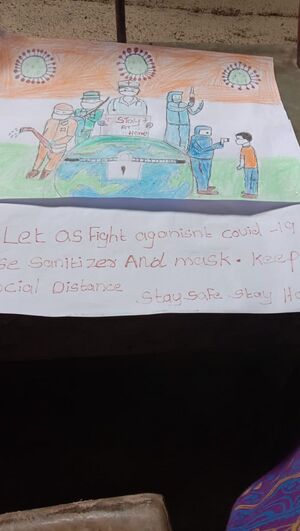 Stay
At
Home
Let as Fight aganisnt covid -19
se sanitizer And mask. Keep
ocial Distance
Stay safe Stay Ho